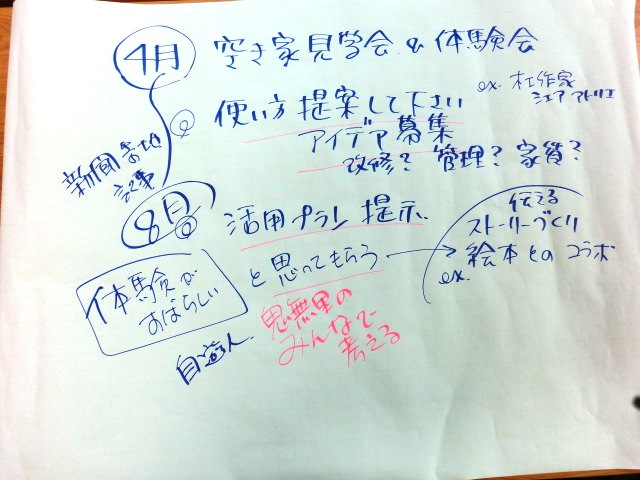 4月 空き家見学会 & 体験会
使い方 提案して下さい
ex. 木工作家
シェアアトリエ
アイデア募集
改修? 管理? 家賃?
新聞
記事
8月 活用プラン 提示
体験が
すばらしい
と思ってもらう
伝える
ストーリーづくり
絵本とのコラボ
ex.
自遊人
鬼無里の
みんなで
考える